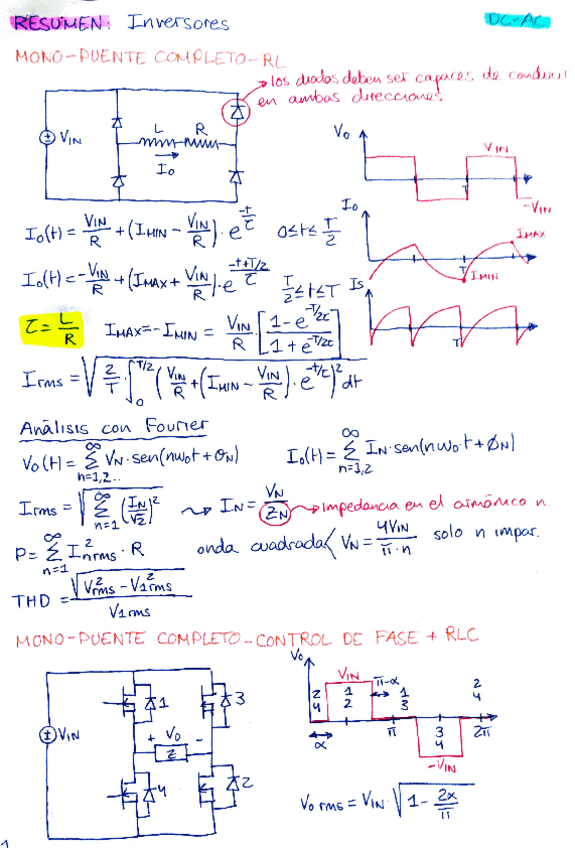 RESUMEN: Inversores DC-AC
MONO-PUENTE COMPLETO-RL
los diodos deben ser capaces de conducir
en ambas direcciones
VIN
L R
Io
Vo VIN T -VIN
Io(t) = VIN/R + (IMIN - VIN/R)·e^(-t/τ) 0≤t≤T/2
Io(t) = -VIN/R + (IMAX + VIN/R)·e^(-t+T/2/τ) T/2≤t≤T
Io IMAX T IMIN
Is T
τ = L/R
IMAX = -IMIN = VIN/R · [1-e^(-T/2τ) / 1+e^(-T/2τ)]
Irms = √(2/T · ∫₀^(T/2) (VIN/R + (IMIN - VIN/R)·e^(-t/τ))² dt
Análisis con Fourier
Vo(t) = ∞Σn=1,2.. VN·sen(nwot + θN) Io(t) = ∞Σn=1,2 IN·sen(nwot + ØN)
Irms = √(∞Σn=1 (IN/√2)²) ⇝ IN = VN/ZN → impedancia en el armónico n.
P = ∞Σn=1 I²nrms · R onda cuadrada < VN = 4VIN/π·n solo n impar.
THD = √(V²rms - V1²rms) / V1rms
MONO-PUENTE COMPLETO-CONTROL DE FASE + RLC
VIN
1 3
+ Vo -
Z
4 2
Vo
VIN π-α
2 4
1 2
1 3
2 4
α π 3 4 2π
-VIN
Vo rms = VIN·√(1 - 2α/π)
1